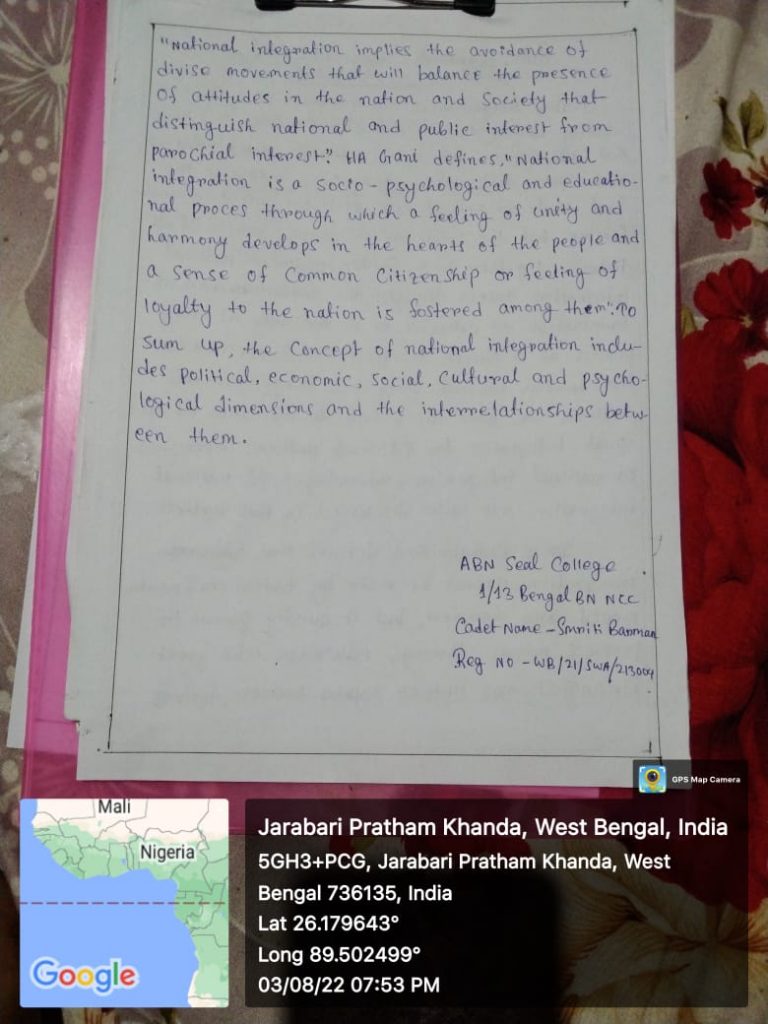 "National integration implies the avoidance of
divise movements that will balance the presence
of attitudes in the nation and Society that
distinguish national and public interest from
parochial interest". HA Gani defines, "National
integration is a socio-psychological and educatio-
nal proces through which a feeling of unity and
harmony develops in the hearts of the people and
a sense of common citizenship or feeling of
loyalty to the nation is fostered among them". To
sum up, the concept of national integration inclu-
des political, economic, social, cultural and psycho-
logical dimensions and the interrelationships betw-
een them.
ABN Seal College
1/13 Bengal BN NCC
Cadet Name - Smriti Barman
Reg No - WB/21/SWA/213004
GPS Map Camera
Mali
Nigeria
Google
Jarabari Pratham Khanda, West Bengal, India
5GH3+PCG, Jarabari Pratham Khanda, West
Bengal 736135, India
Lat 26.179643°
Long 89.502499°
03/08/22 07:53 PM